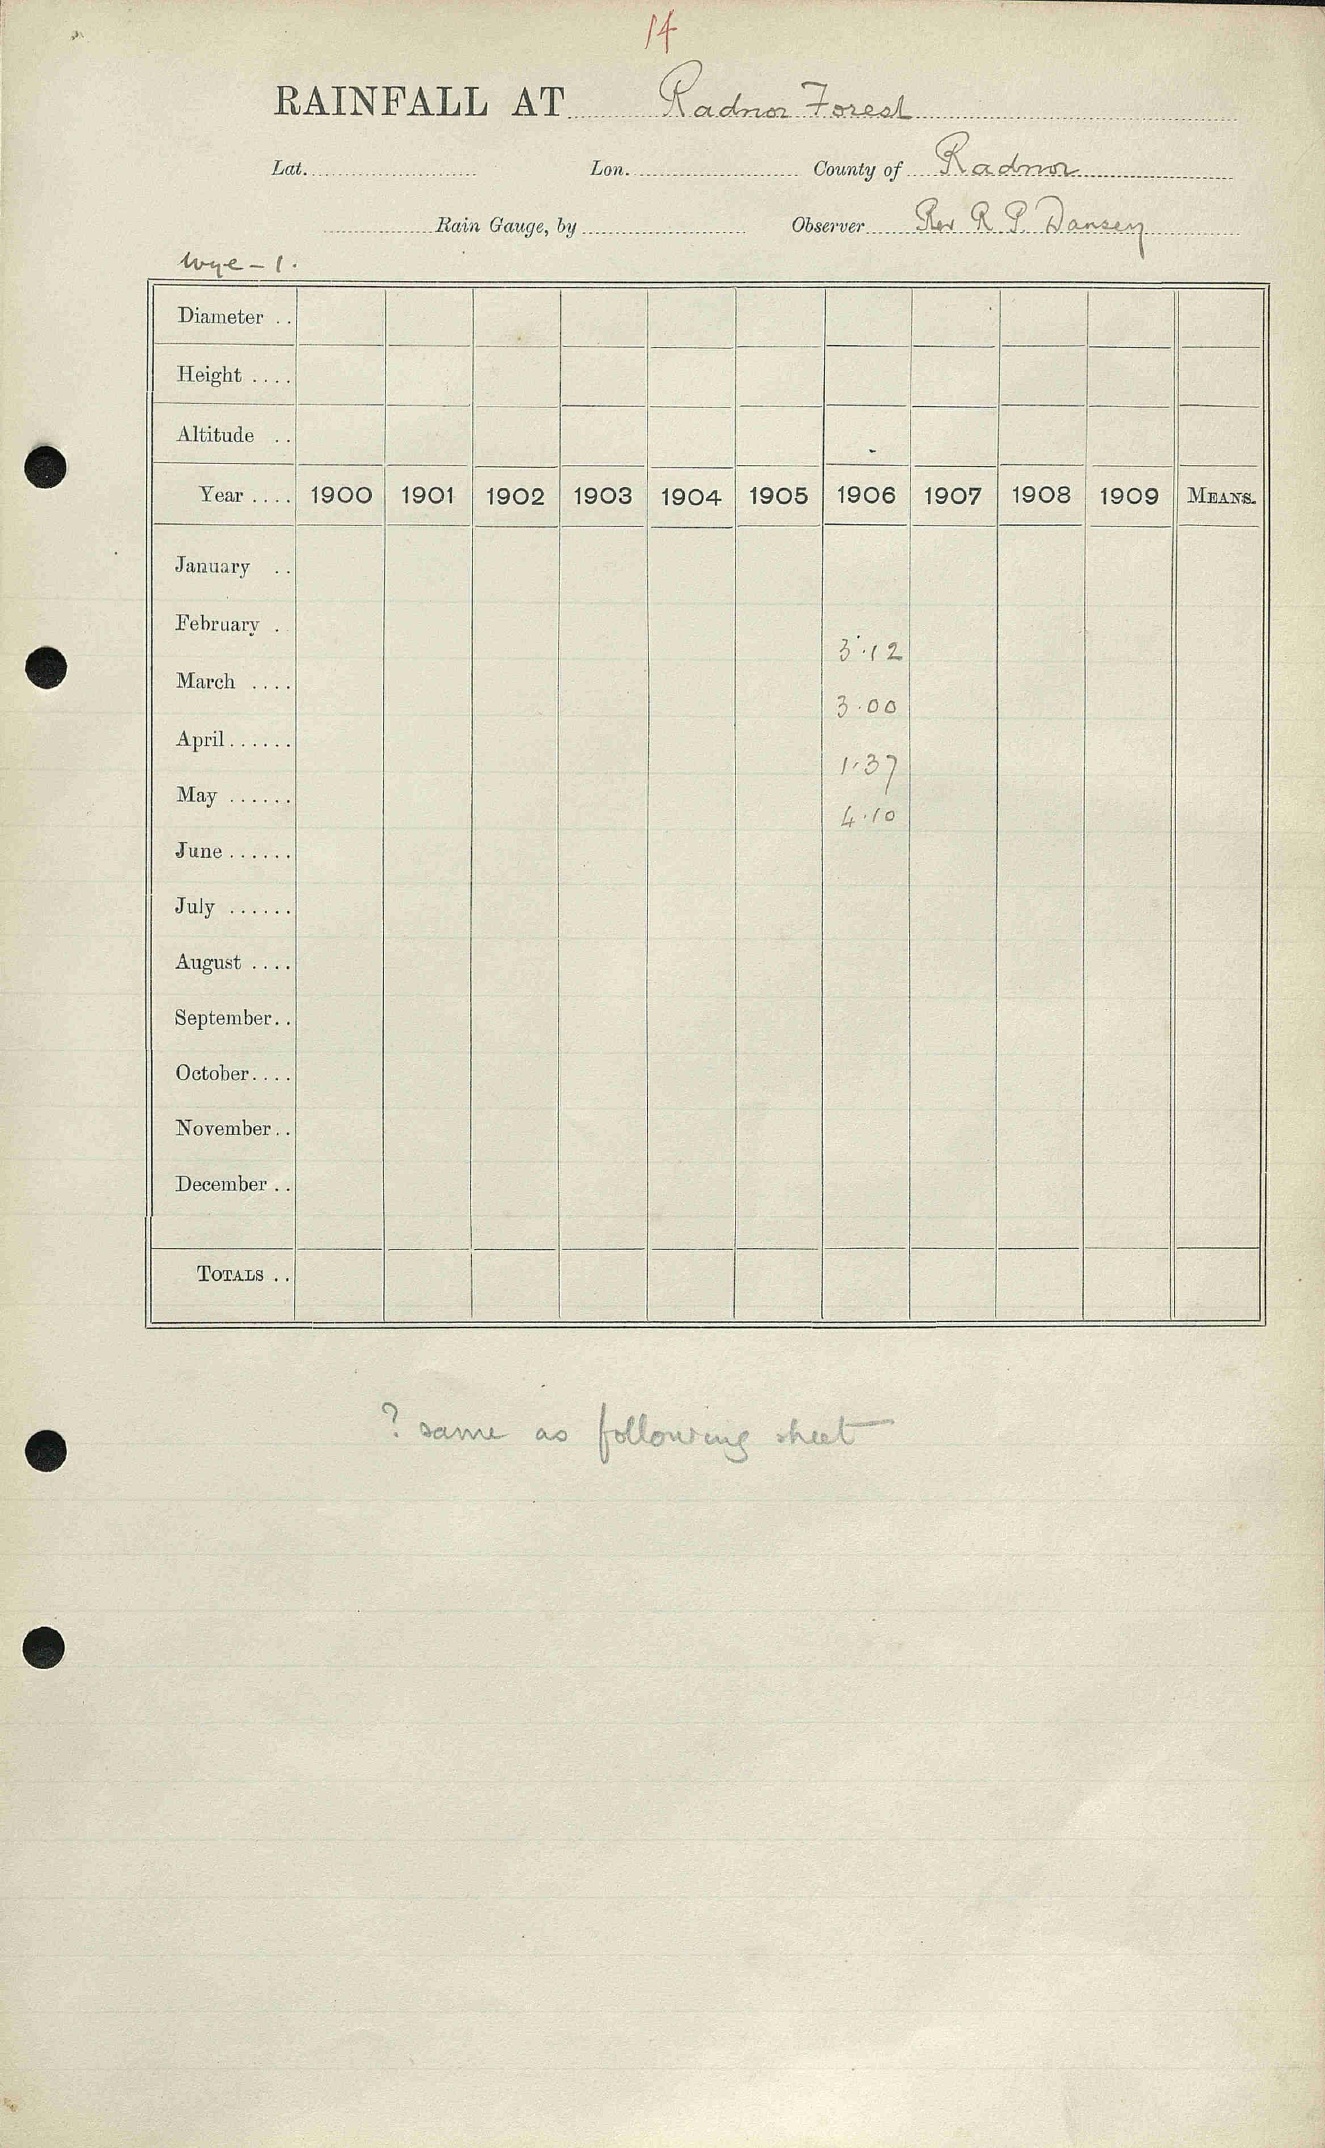 14
RAINFALL AT Radnor Forest
Lat. Lon. County of Radnor
Rain Gauge, by Observer Rev R P. Dansey
Wye - 1.
Diameter ..
Height ....
Altitude ..
Year .... 1900 1901 1902 1903 1904 1905 1906 1907 1908 1909 MEANS.
January ..
February .
3.12
March ....
3.00
April......
1.37
May ......
4.10
June......
July ......
August ....
September..
October....
November..
December ..
TOTALS ..
? same as following sheet